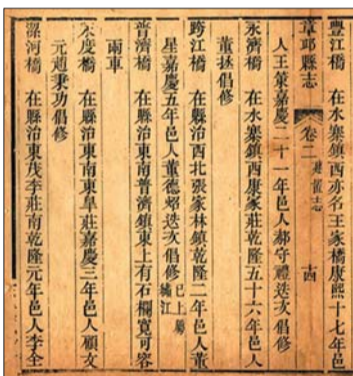 豐江橋 在水寨鎮西亦名王家橋康熙十七年邑
章邱縣志 卷二 建置志 十四
人王策嘉慶二十一年邑人郝守禮迭次倡修
永濟橋 在水寨鎮西康家莊乾隆五十六年邑人
董拯倡修
跨江橋 在縣治西北張家林鎮乾隆二年邑人董
星嘉慶五年邑人董德炤迭次倡修 已上屬繡江
普濟橋 在縣治東南普濟鎮東上有石欄寬可容
兩車
度橋 在縣治東南東臯莊嘉慶三年邑人顧文
元趙秉功倡修
漯河橋 在縣治東茂李莊南乾隆元年邑人李全